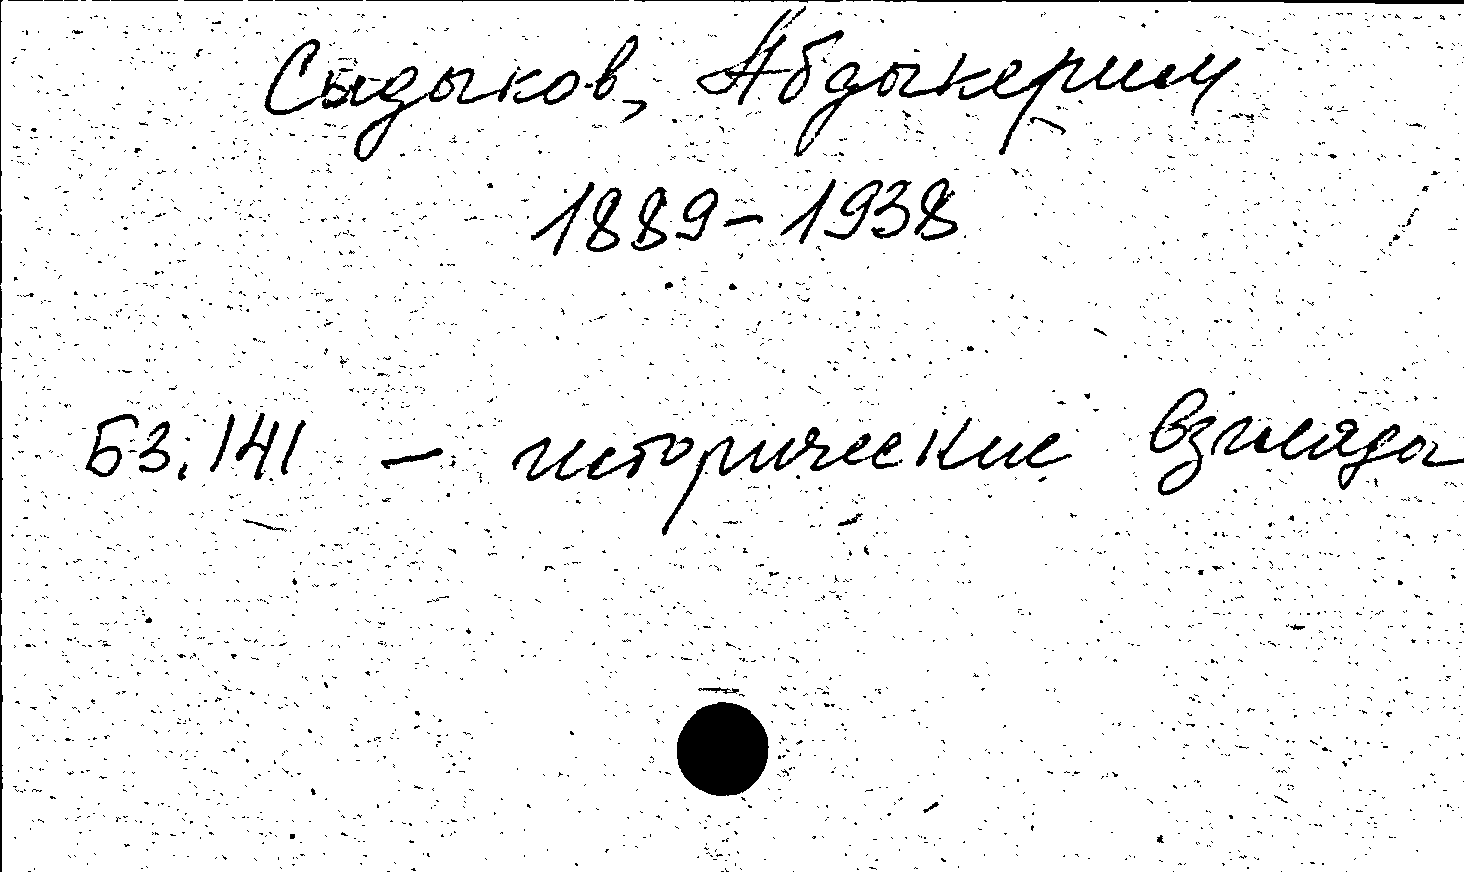 Сыдыков, Абдыкерим
1889-1938
Б3.141 - исторические взгляды